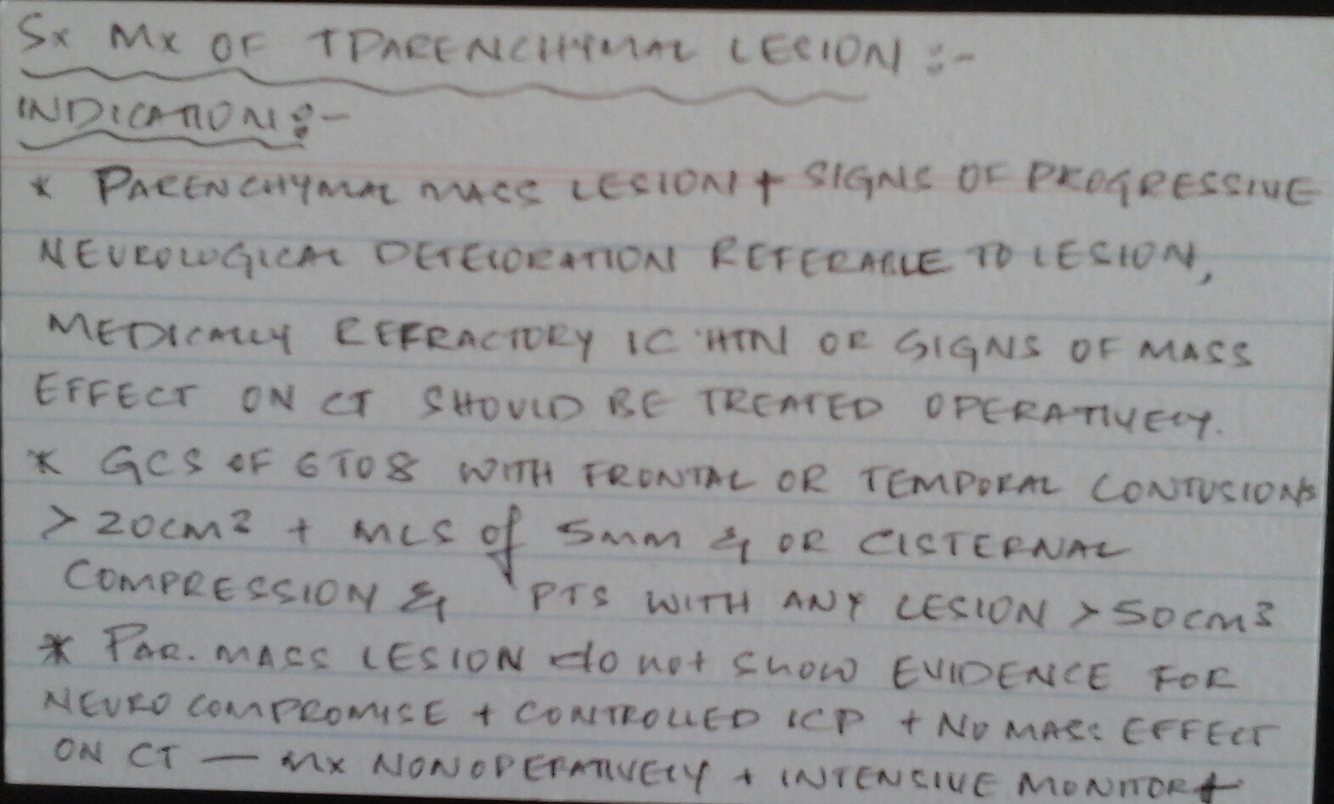 Sx Mx OF TPARENCHYMAL LESION :-
INDICATION :-
* PARENCHYMAL MASS LESION + SIGNS OF PROGRESSIVE
NEUROLOGICAL DETELORATION REFERABLE TO LESION,
MEDICALLY REFRACTORY IC HTN OR SIGNS OF MASS
EFFECT ON CT SHOULD BE TREATED OPERATIVELY.
* GCS OF 6 TO 8 WITH FRONTAL OR TEMPORAL CONTUSIONS
> 20cm2 + MLS of 5mm & OR CISTERNAL
COMPRESSION & PTS WITH ANY LESION > 50cm3
* PAR. MASS LESION do not show EVIDENCE FOR
NEURO COMPROMISE + CONTROLLED ICP + NO MASS EFFECT
ON CT — MX NONOPERATIVELY + INTENSIVE MONITOR+